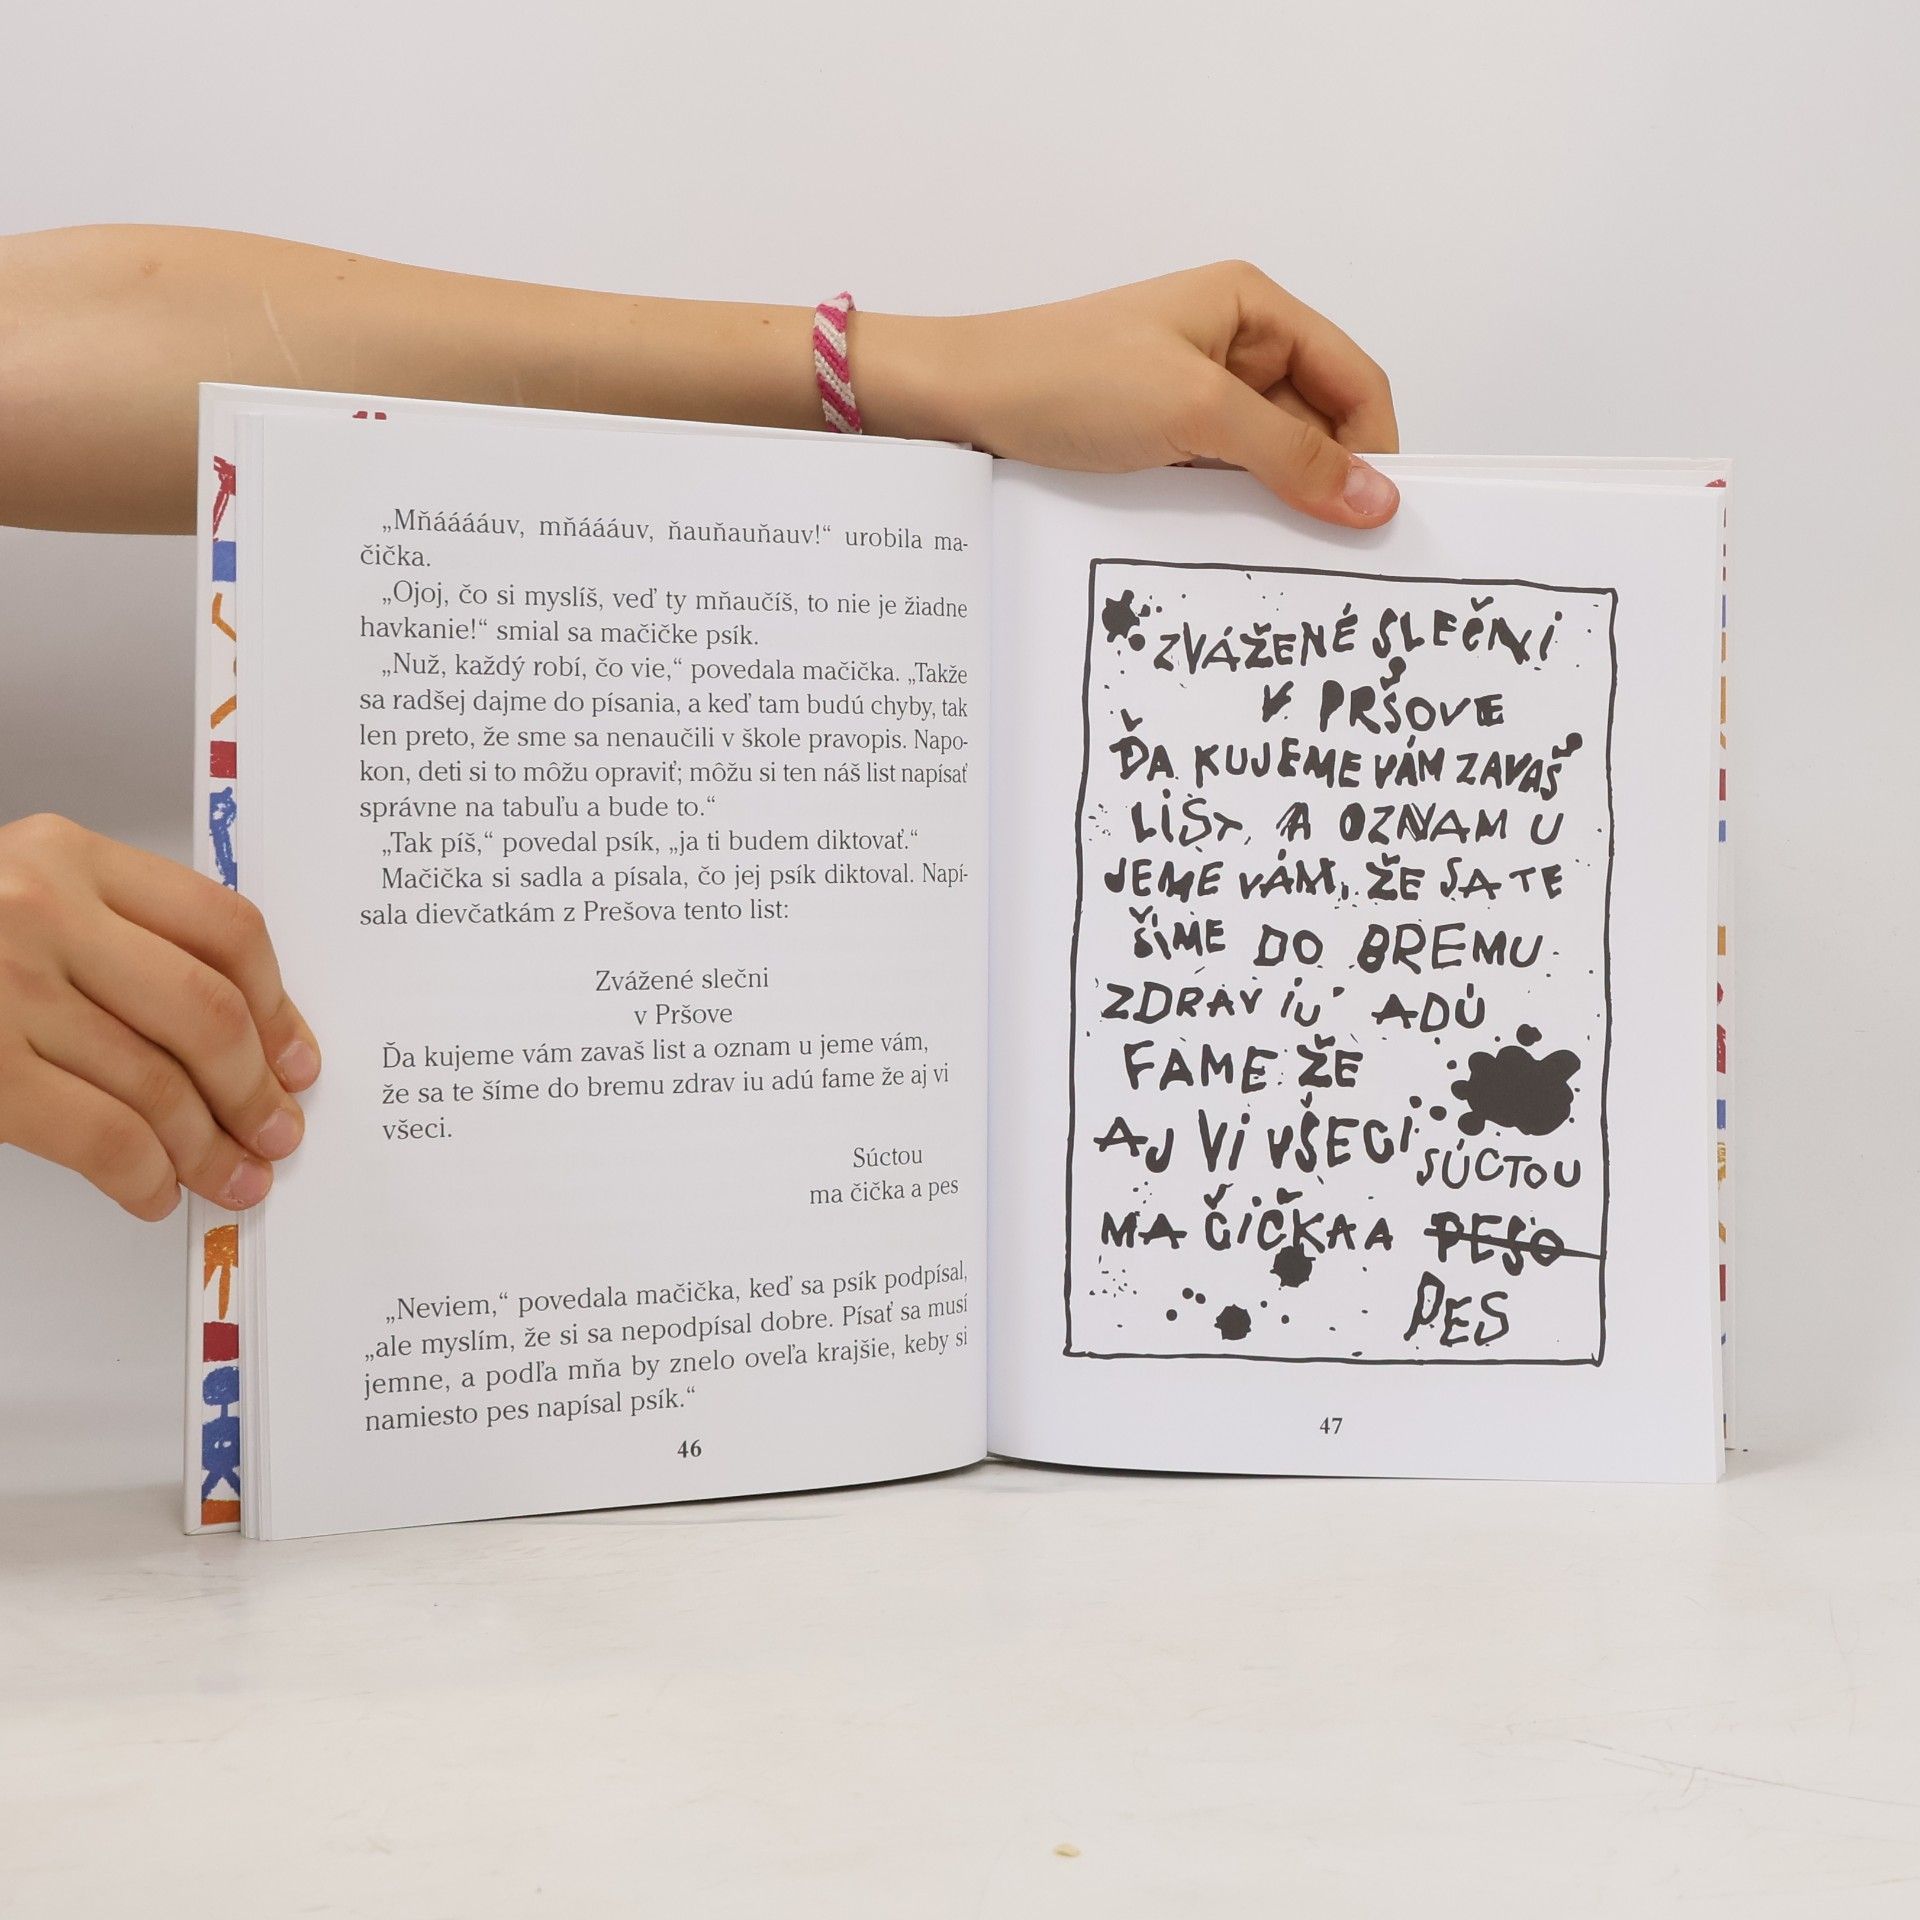 „Mňááááuv, mňáááuv, ňauňauňauv!“ urobila ma-
čička.
„Ojoj, čo si myslíš, veď ty mňaučíš, to nie je žiadne
havkanie!“ smial sa mačičke psík.
„Nuž, každý robí, čo vie,“ povedala mačička. „Takže
sa radšej dajme do písania, a keď tam budú chyby, tak
len preto, že sme sa nenaučili v škole pravopis. Napo-
kon, deti si to môžu opraviť; môžu si ten náš list napísať
správne na tabuľu a bude to.“
„Tak píš,“ povedal psík, „ja ti budem diktovať.“
Mačička si sadla a písala, čo jej psík diktoval. Napí-
sala dievčatkám z Prešova tento list:
Zvážené slečni
v Pršove
Ďa kujeme vám zavaš list a oznam u jeme vám,
že sa te šíme do bremu zdrav iu adú fame že aj vi
všeci.
Súctou
ma čička a pes
„Neviem,“ povedala mačička, keď sa psík podpísal,
„ale myslím, že si sa nepodpísal dobre. Písať sa musí
jemne, a podľa mňa by znelo oveľa krajšie, keby si
namiesto pes napísal psík.“
46
ZVÁŽENÉ SLEČNI
V PRŠOVE
ĎA KUJEME VÁM ZAVAŠ
LIST, A OZNAM U
JEME VÁM, ŽE SA TE
ŠÍME DO BREMU
ZDRAV IU ADÚ
FAME ŽE
AJ VI VŠECI
SÚCTOU
MA ČIČKA A PESO
PES
47